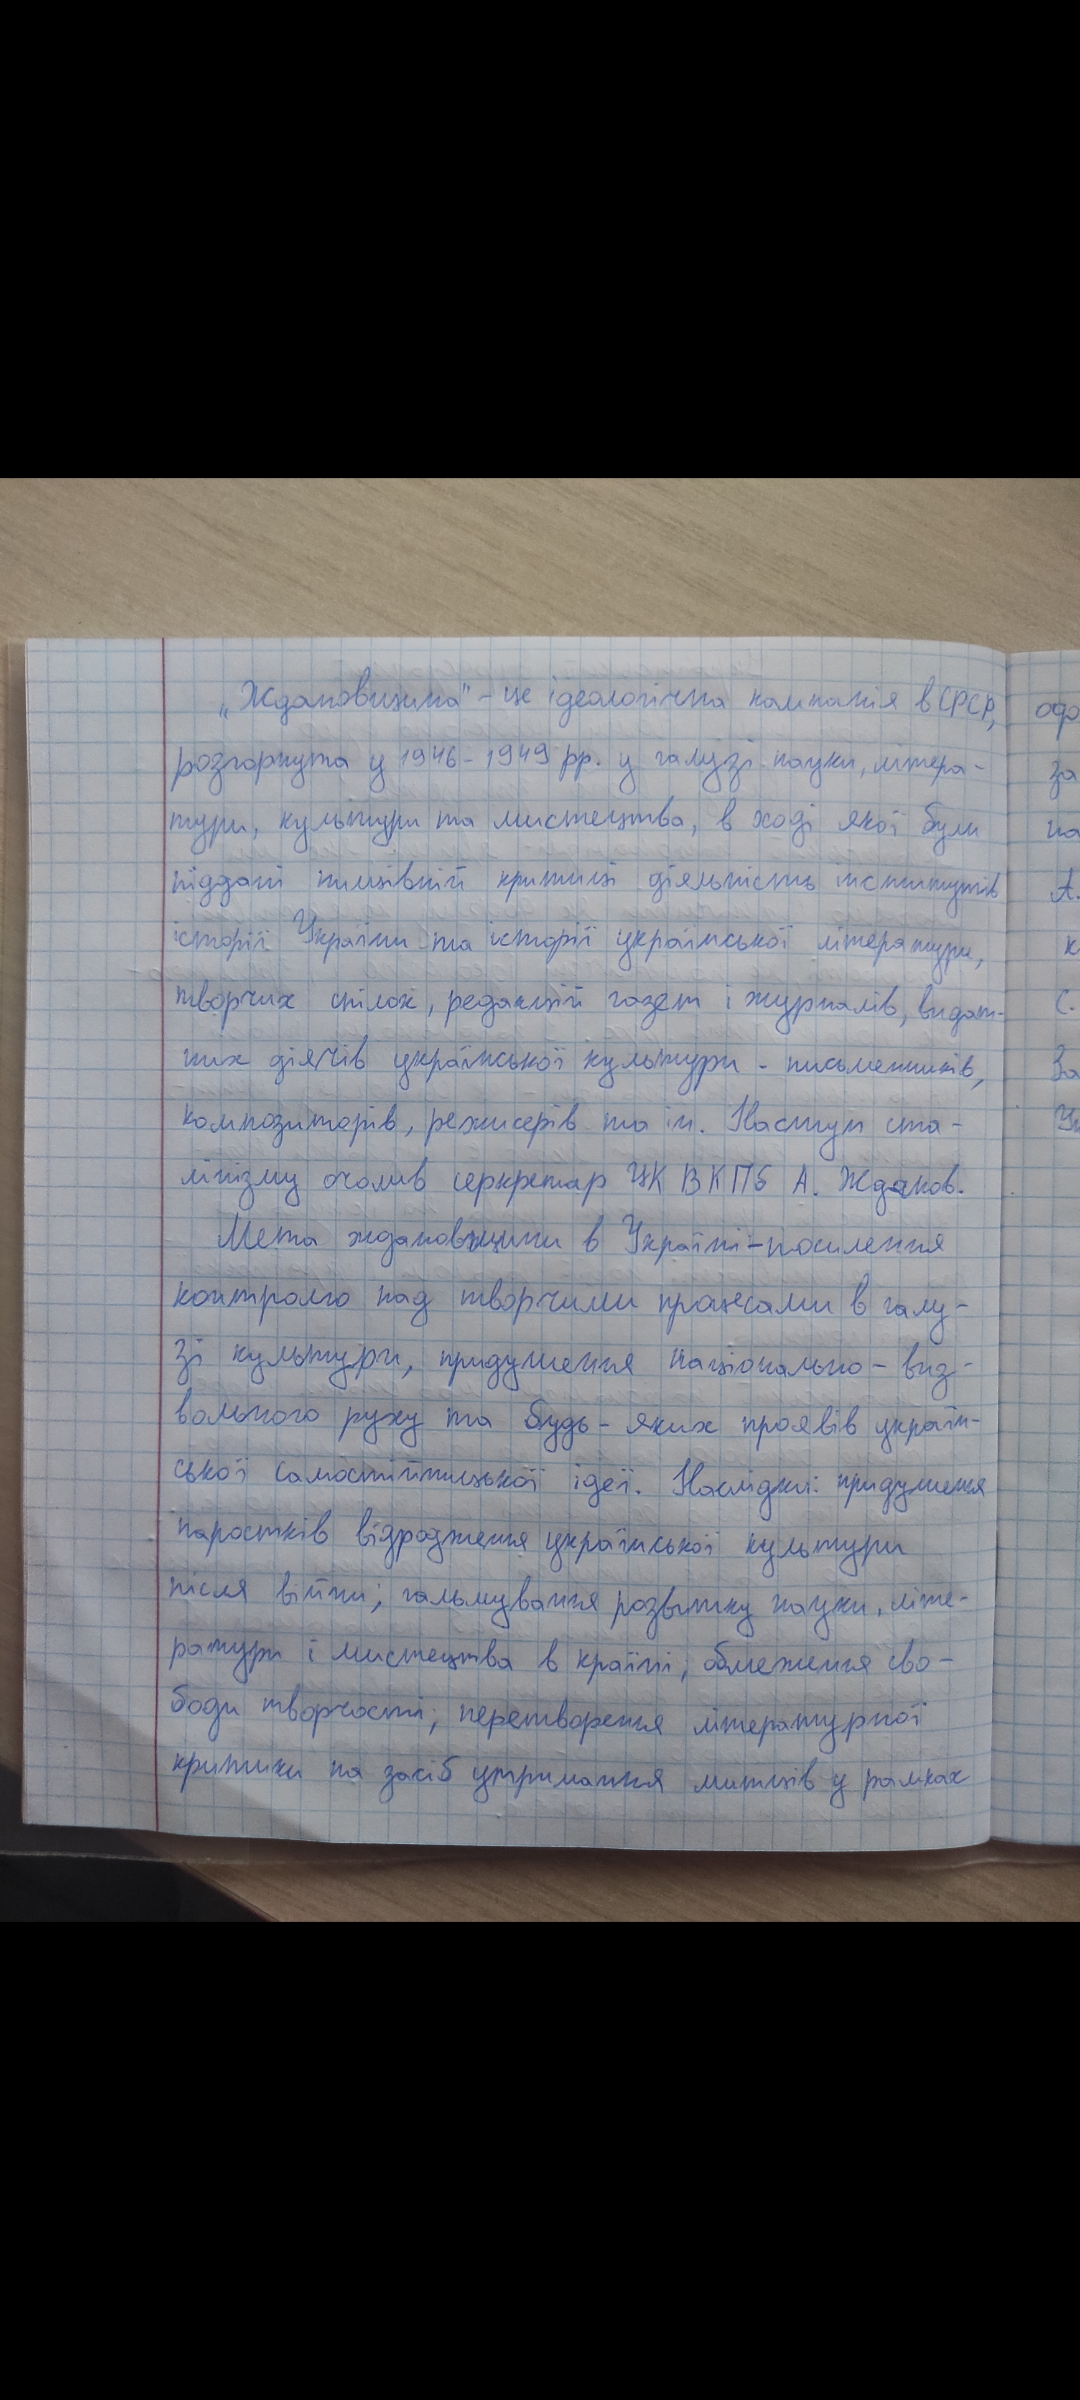 „Ждановщина" - це ідеологічна кампанія в СРСР,
розгорнута у 1946-1949 рр. у галузі науки, літера-
тури, культури та мистецтва, в ході якої були
піддані нищівній критиці діяльність інститутів
історії України та історії української літератури,
творчих спілок, редакцій газет і журналів, видат-
них діячів української культури - письменників,
композиторів, режисерів та ін. Наступ ста-
лінізму очолив серкретар ЦК ВКПб А. Жданов.
Мета ждановщини в Україні - посилення
контролю над творчими процесами в галу-
зі культури, придушення національно - виз-
вольного руху та будь - яких проявів україн-
ської самостійницької ідеї. Наслідки: придушення
паростків відродження української культури
після війни; гальмування розвитку науки, літе-
ратури і мистецтва в країні; обмеження сво-
боди творчості; перетворення літературної
критики на засіб утримання митців у рамках
офо
за
на
А.
к
С.
За
Ук